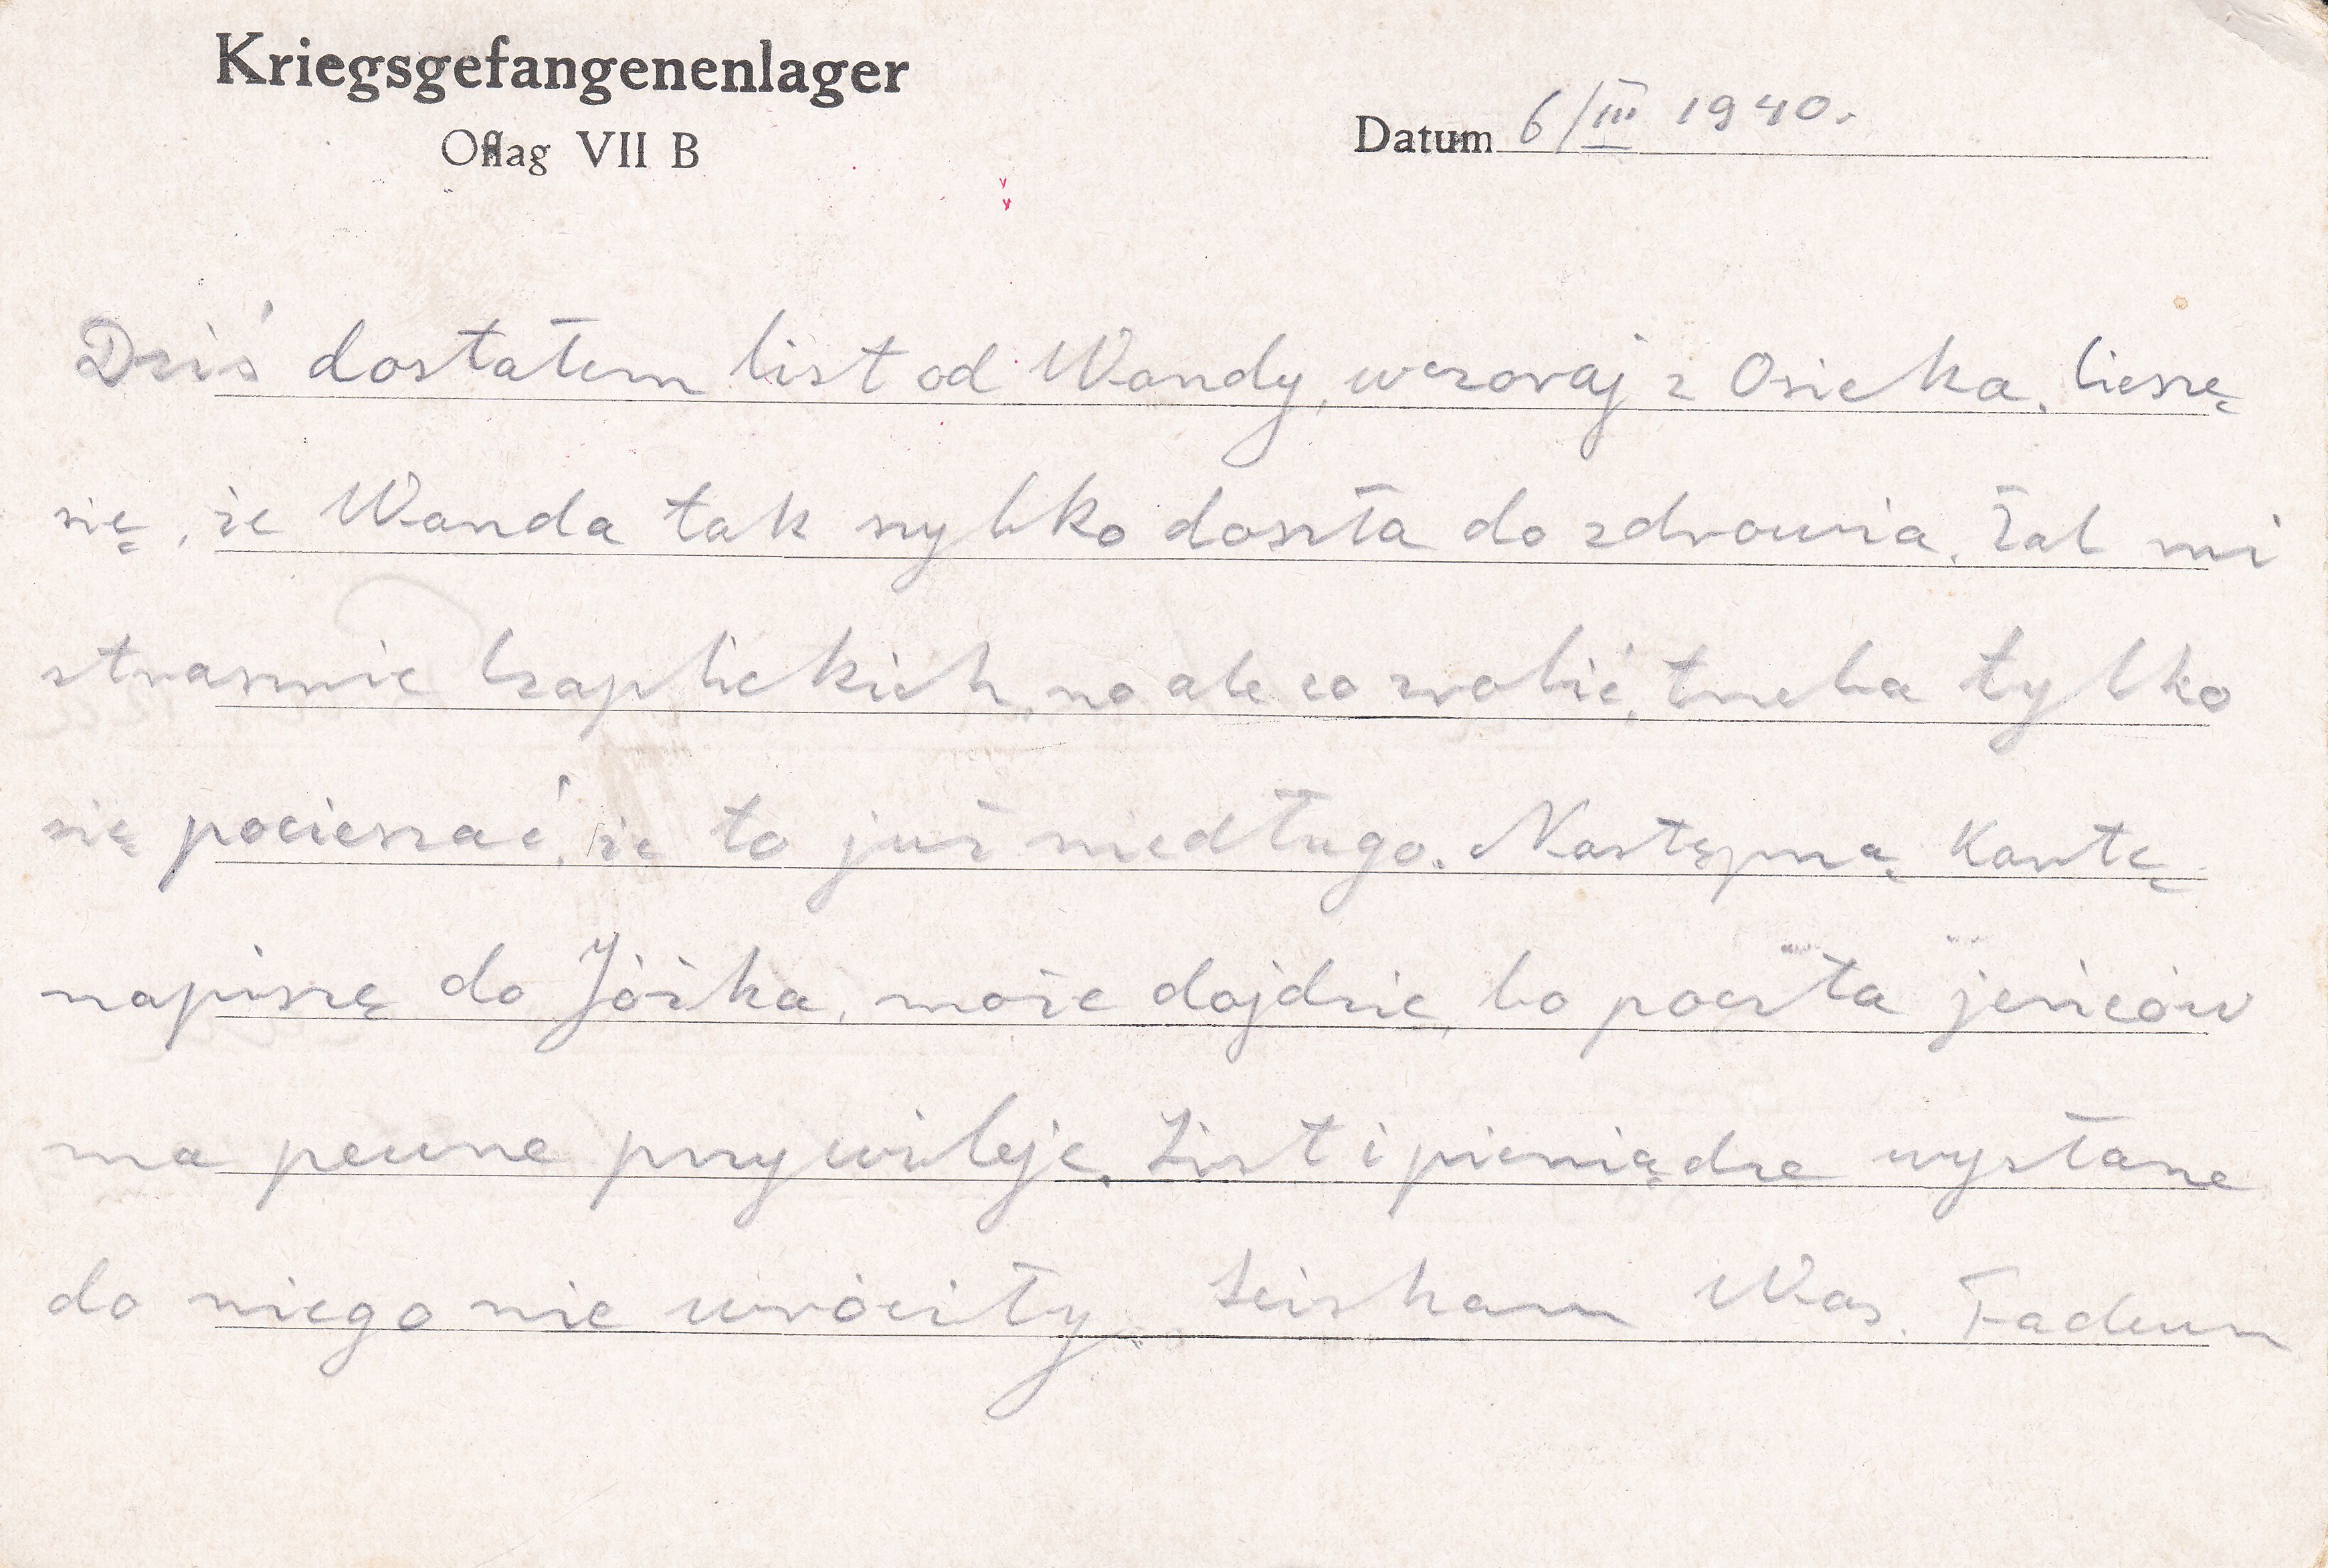 Kriegsgefangenenlager
Oflag VII B
Datum 6/III 1940.
Dziś dostałem list od Wandy, wczoraj z Osieka. Cieszę
się, że Wanda tak szybko doszła do zdrowia. Żal mi
strasznie Czaplickich, no ale co zrobić, trzeba tylko
się pocieszać, że to już niedługo. Następną kartę
napiszę do Józka, może dojdzie, bo poczta jeńców
ma pewne przywileje. List i pieniądze wysłane
do niego nie wróciły. Ściskam Was. Tadeusz